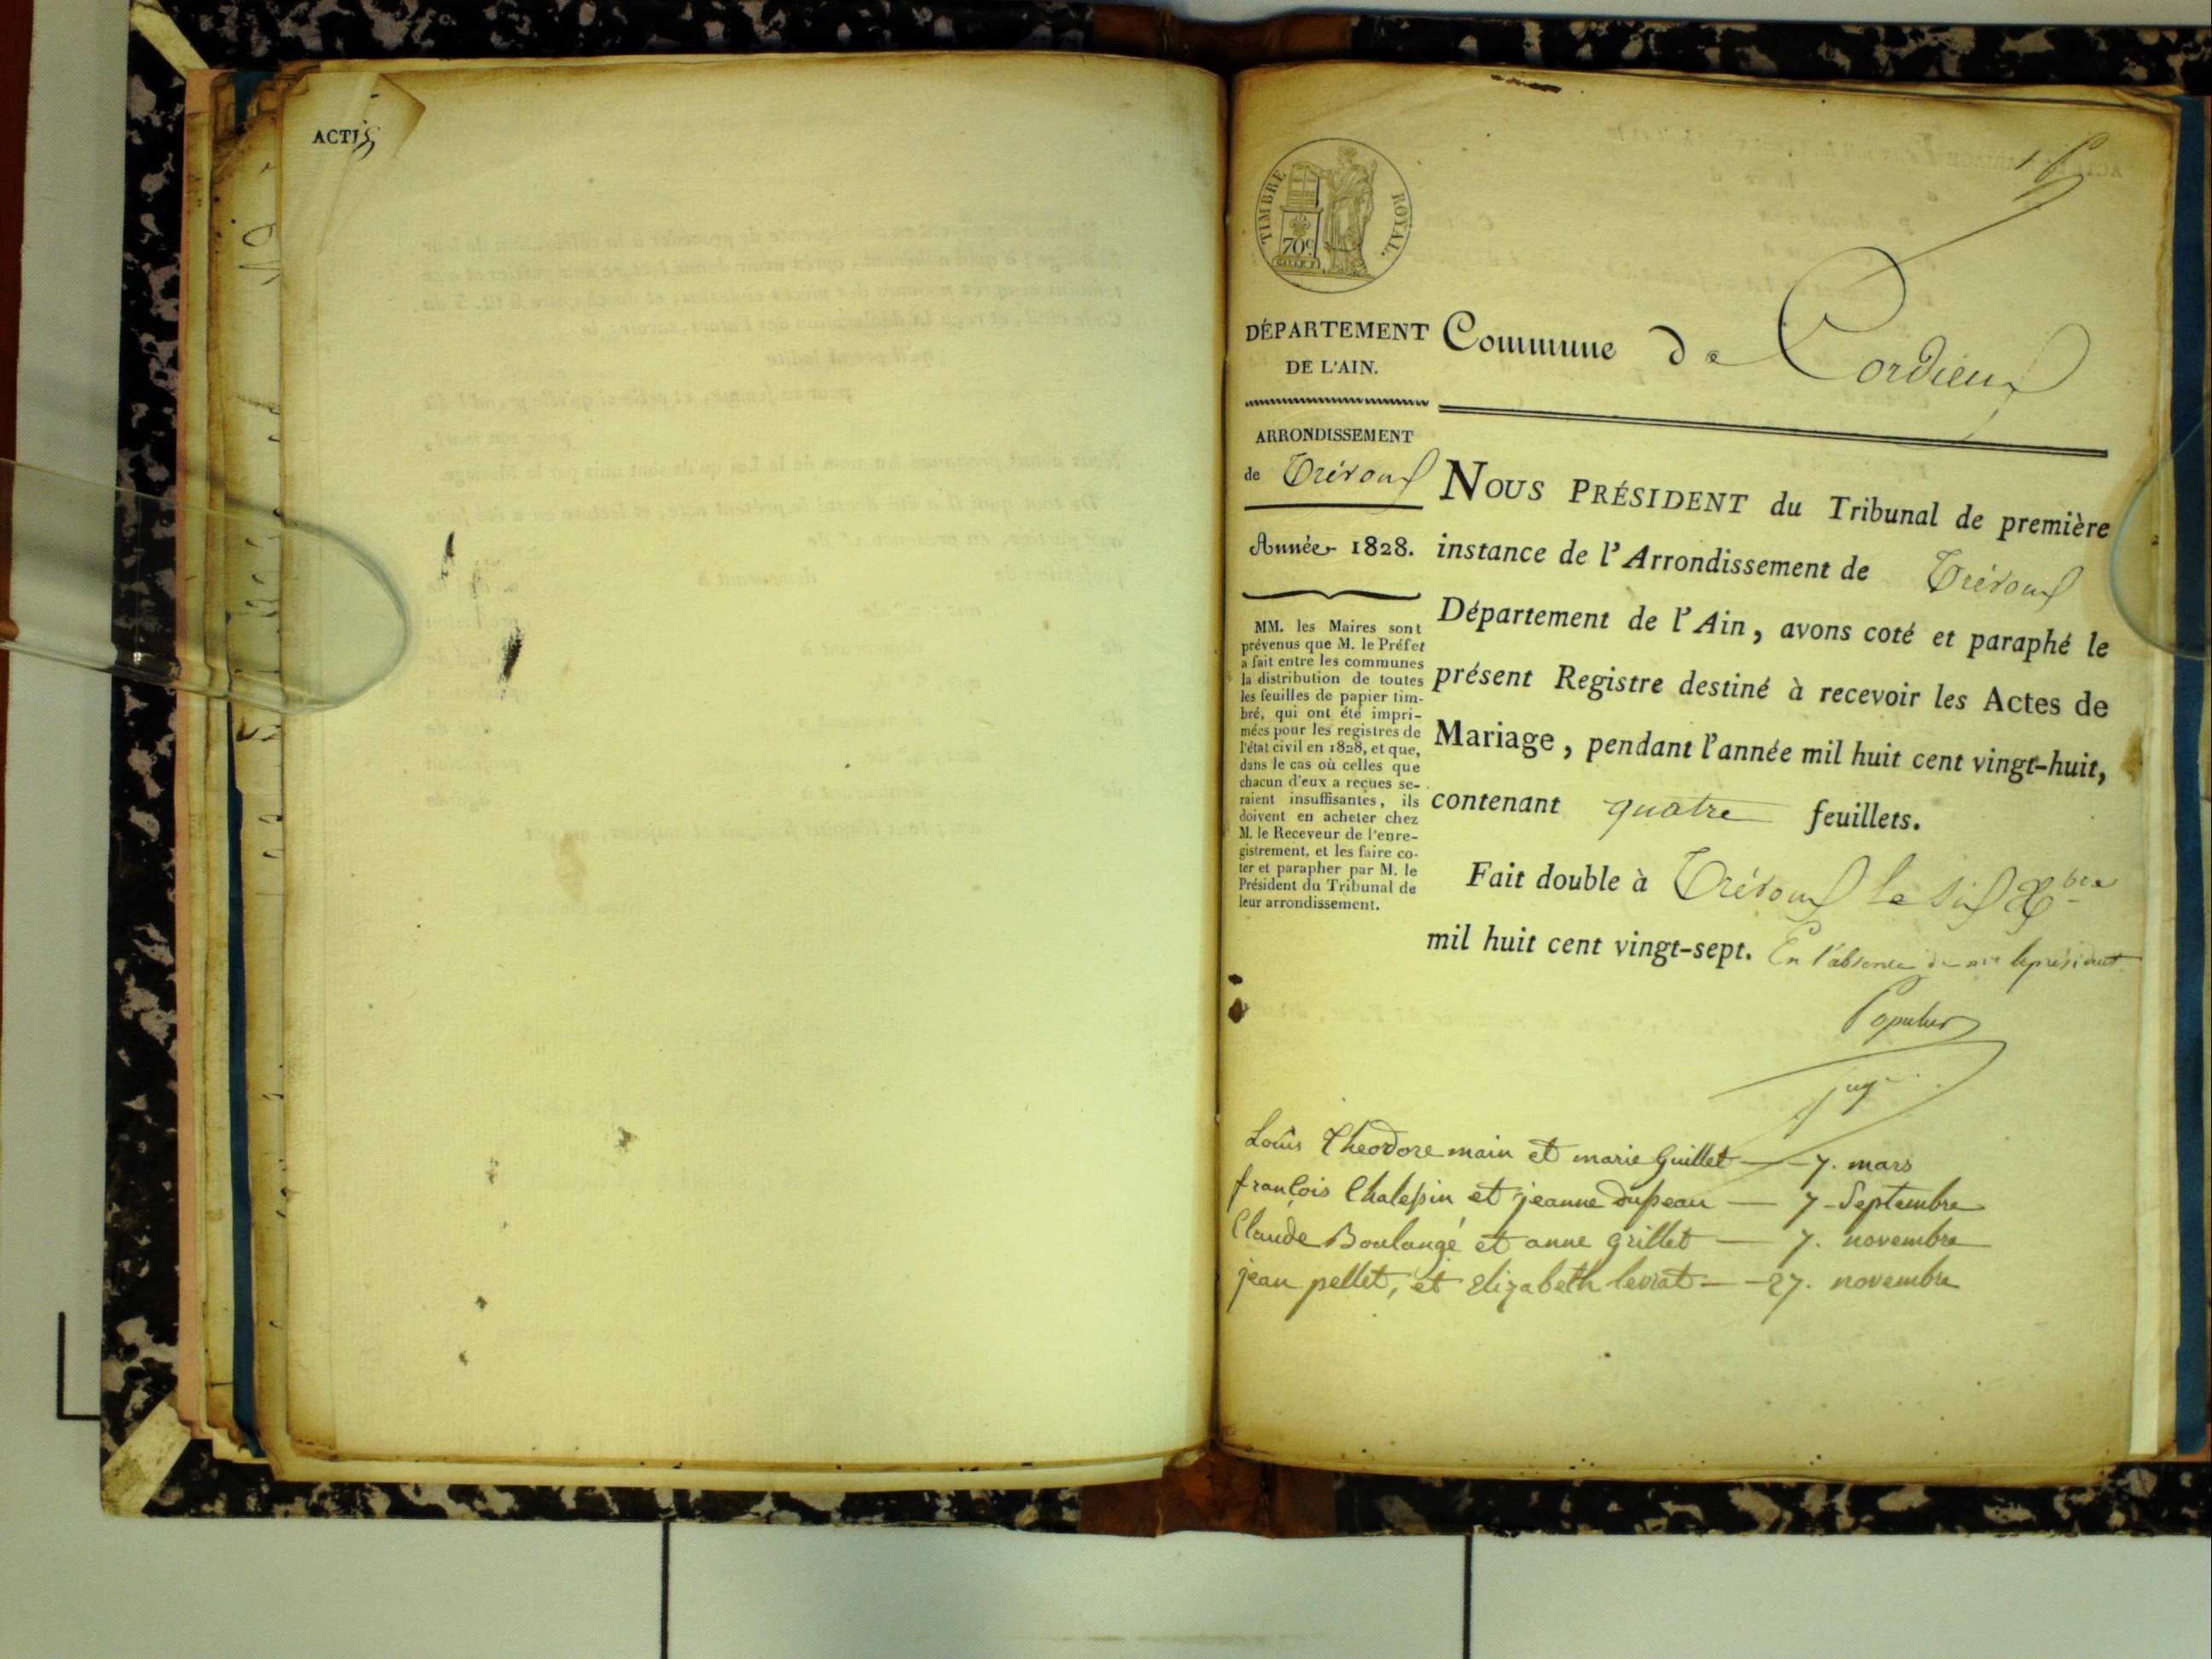 ACTE
TIMBRE ROYAL.
70c
DÉPARTEMENT
DE L'AIN.
Commune de Cordieux
ARRONDISSEMENT
de Trévoux
Année 1828.
MM. les Maires sont
prévenus que M. le Préfet
a fait entre les communes
la distribution de toutes
les feuilles de papier tim-
bré, qui ont été impri-
mées pour les registres de
l'état civil en 1828, et que,
dans le cas où celles que
chacun d'eux a reçues se-
raient insuffisantes, ils
doivent en acheter chez
M. le Receveur de l'enre-
gistrement, et les faire co-
ter et parapher par M. le
Président du Tribunal de
leur arrondissement.
NOUS PRÉSIDENT du Tribunal de première
instance de l'Arrondissement de Trévoux
Département de l'Ain, avons coté et paraphé le
présent Registre destiné à recevoir les Actes de
Mariage, pendant l'année mil huit cent vingt-huit,
contenant quatre feuillets.
Fait double à Trévoux le six Xbre
mil huit cent vingt-sept. En l'absence de mr le président
juge
Louis Theodore main et marie Guillet — 7. mars
françois Chalessin et jeanne dusseau — 7 - Septembre
Claude Boulangé et anne grillet — 7. novembre
jean pellet, et elizabeth levrat — 27. novembre